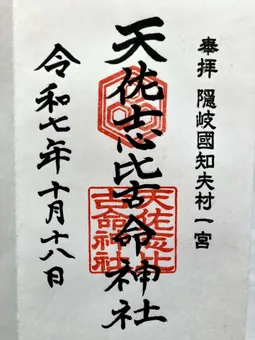 奉拝 隠岐國知夫村一宮
天佐志比古命神社
天佐志比
古命神社
令和七年十月十八日